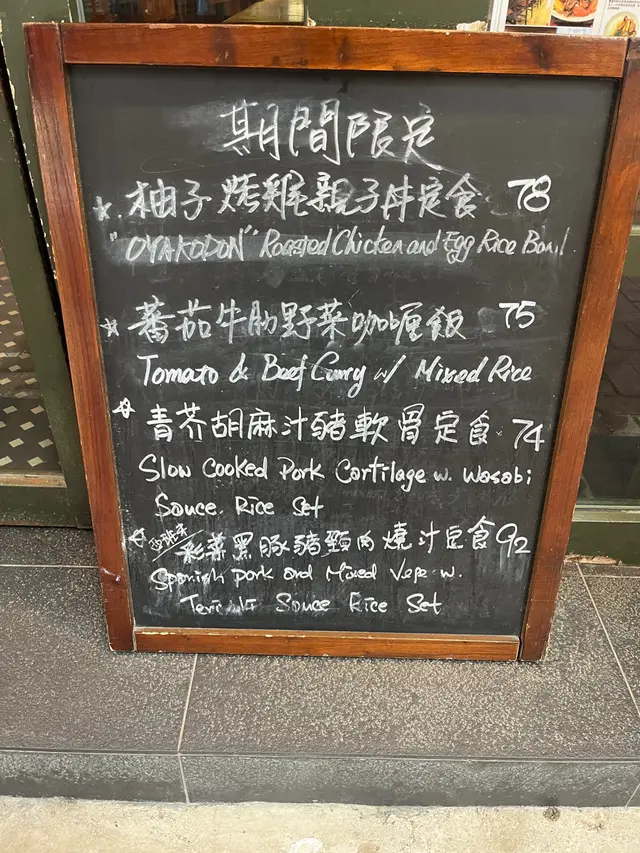 期間限定
柚子烤雞親子丼定食 78
"OYAKODON" Roasted Chicken and Egg Rice Bowl
蕃茄牛肋野菜咖喱飯 75
Tomato & Beef Curry w/ Mixed Rice
青芥胡麻汁豬軟骨定食 74
Slow Cooked Pork Cartilage w. Wasabi
Sauce Rice Set
西班牙彩蔬黑豚豬頸肉燒汁定食 92
Spanish pork and Mixed Vege w.
Teriyaki Sauce Rice Set